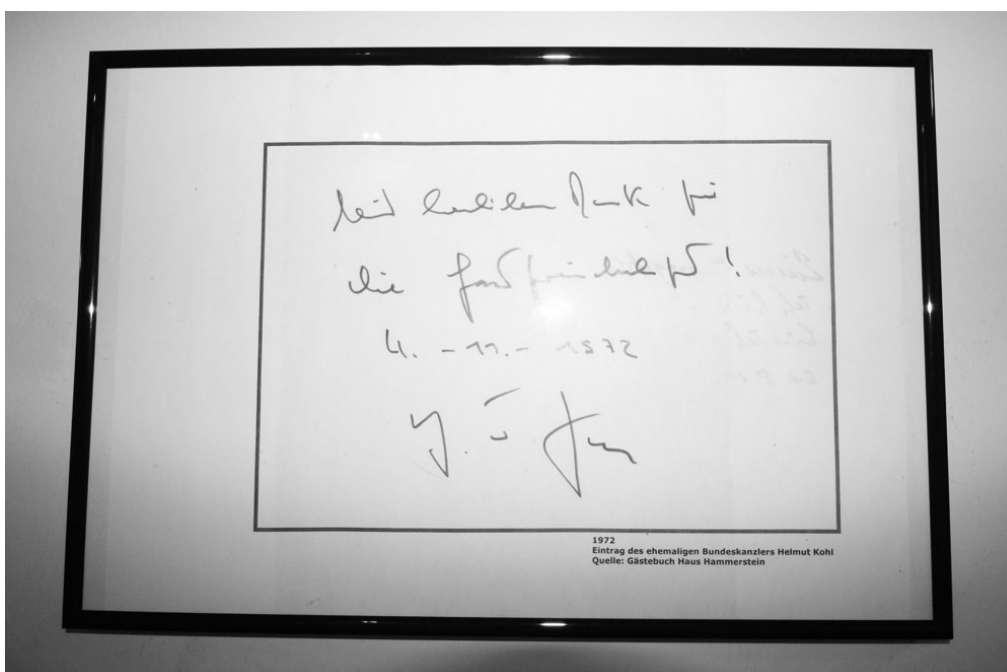 Mit herzlichem Dank für
die Gastfreundschaft!
4. - 11. - 1972
1972
Eintrag des ehemaligen Bundeskanzlers Helmut Kohl
Quelle: Gästebuch Haus Hammerstein